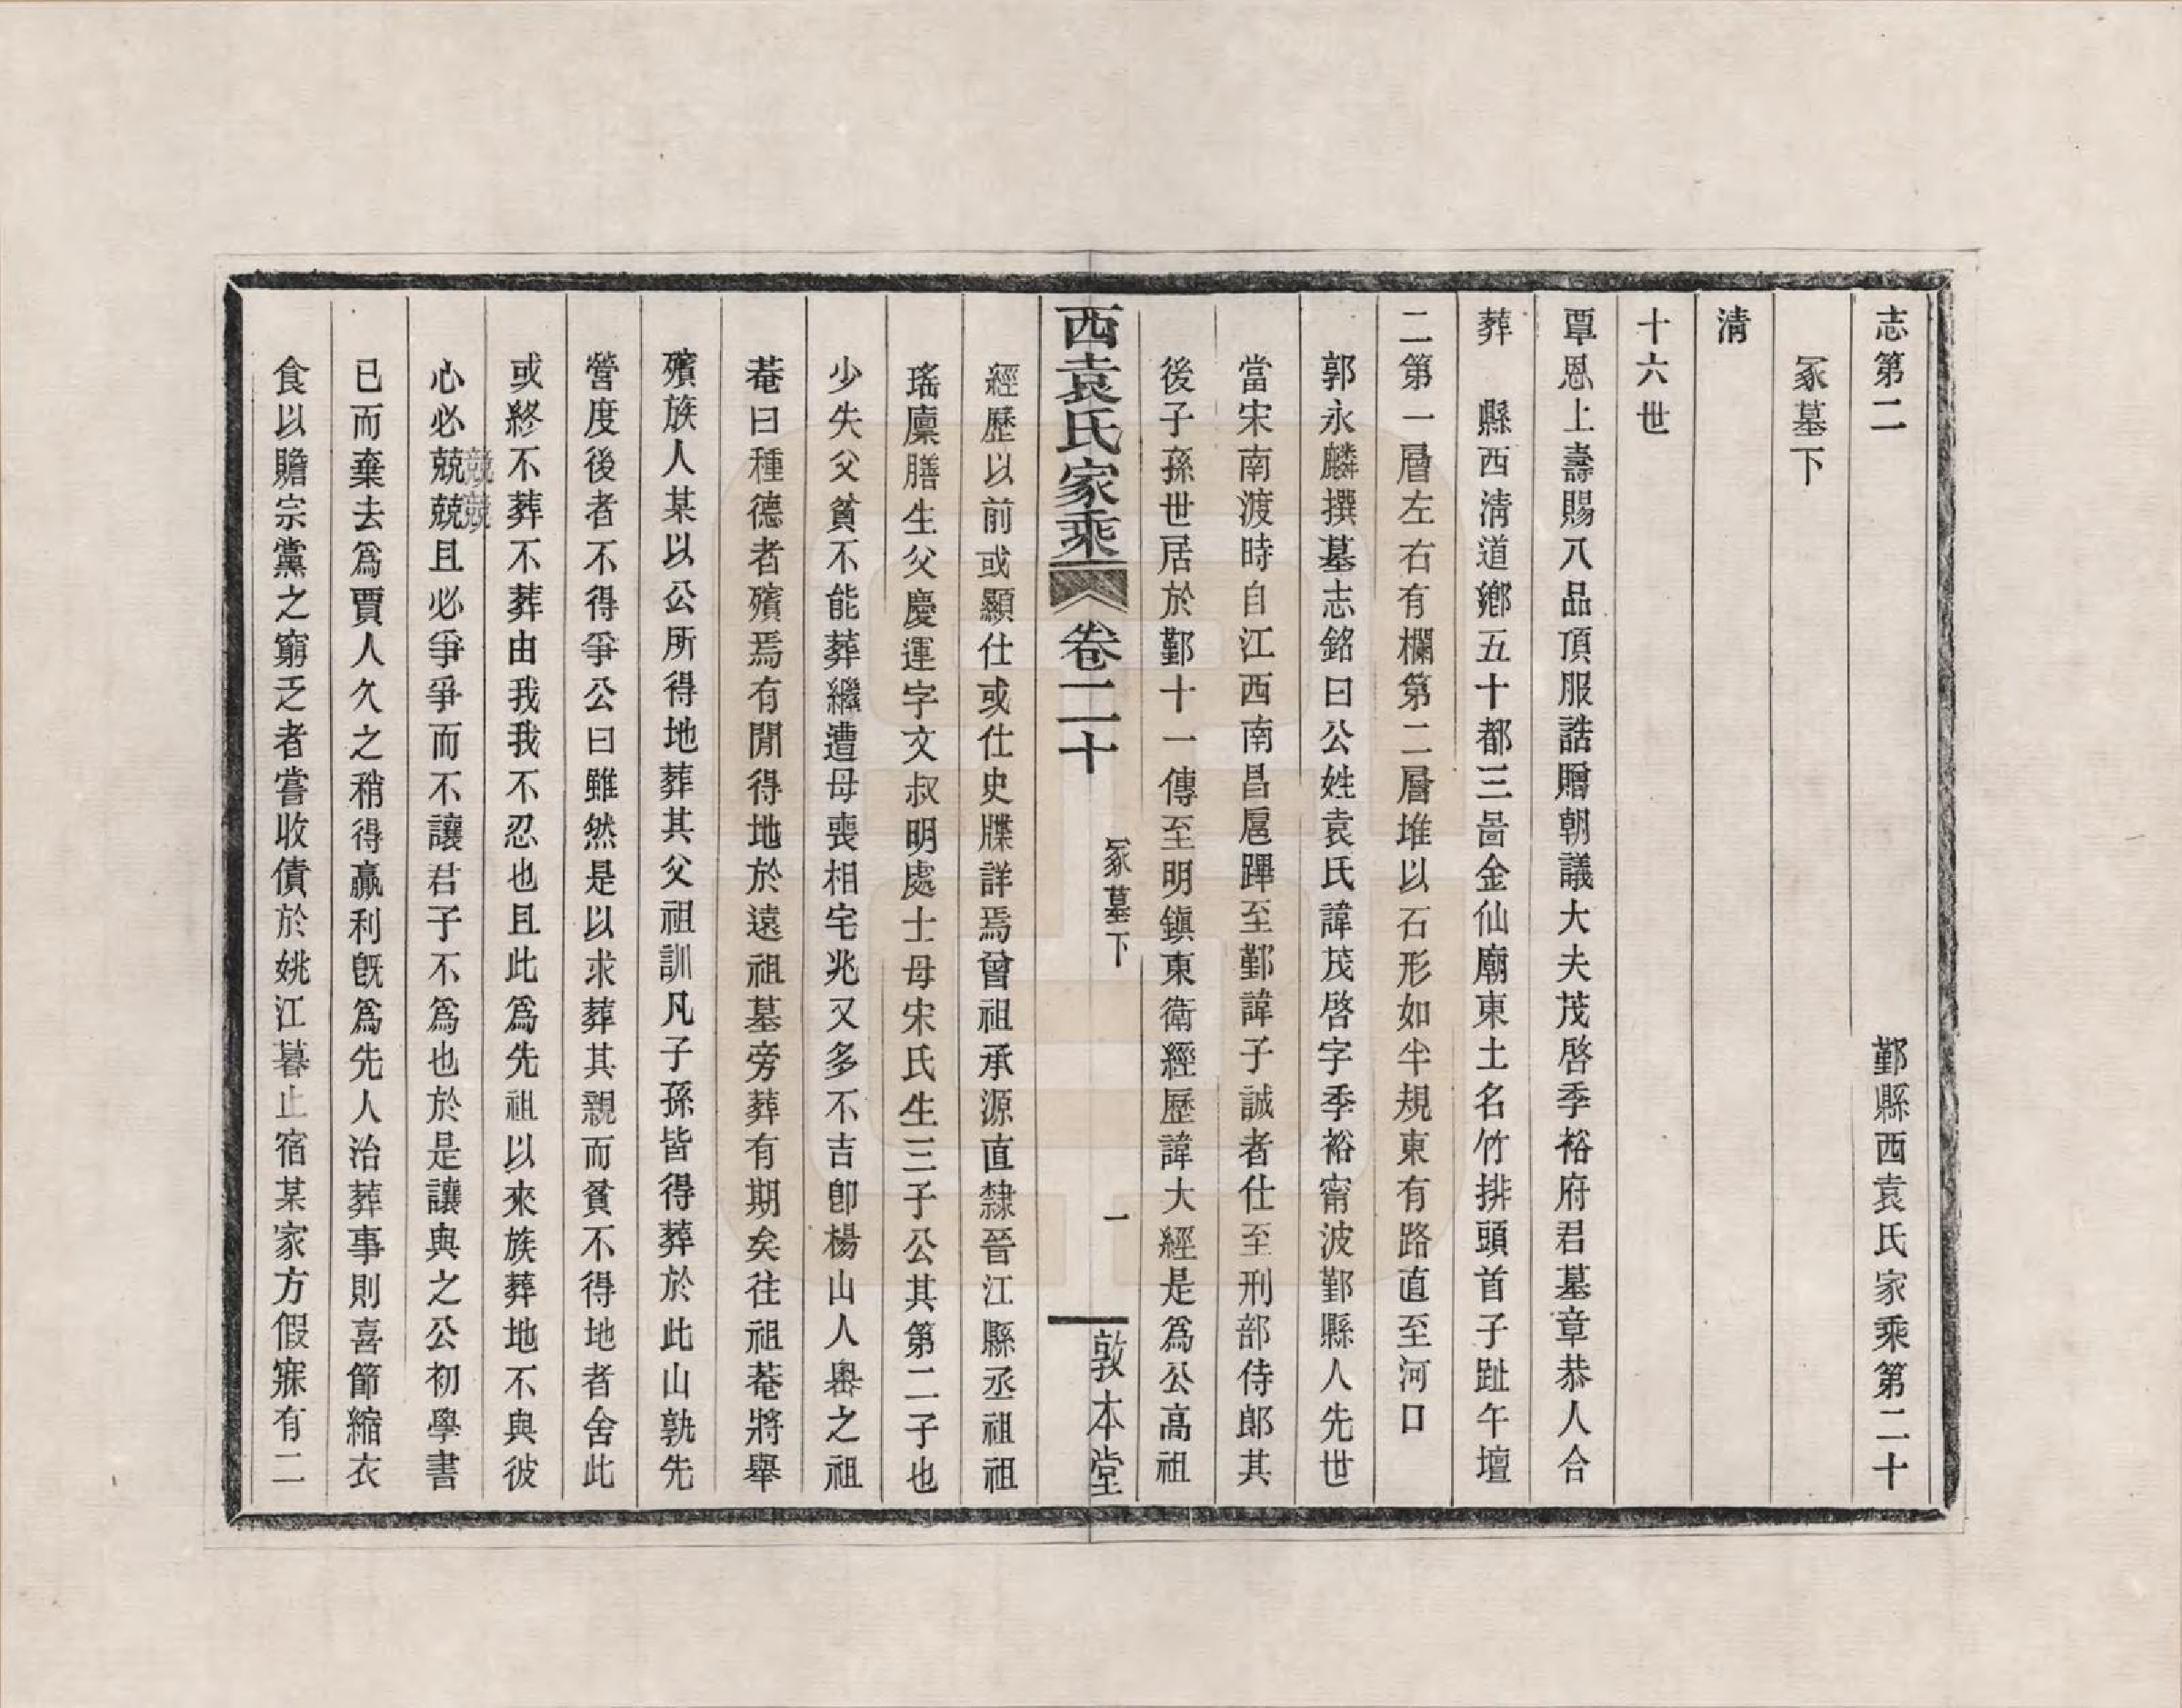 志第二　鄞縣西袁氏家乘第二十
冢墓下
清
十六世
覃恩上壽賜八品頂服誥贈朝議大夫茂啓季裕府君墓章恭人合
葬　縣西清道鄉五十都三啚金仙廟東土名竹排頭首子趾午壇
二第一層左右有欄第二層堆以石形如半規東有路直至河口
郭永麟撰墓志銘曰公姓袁氏諱茂啓字季裕甯波鄞縣人先世
當宋南渡時自江西南昌扈蹕至鄞諱子誠者仕至刑部侍郎其
後子孫世居於鄞十一傳至明鎭東衛經歷諱大經是爲公高祖
西袁氏家乘　卷二十　冢墓下　一　敦本堂
經歷以前或顯仕或仕史牒詳焉曾祖承源直隸晉江縣丞祖祖
瑤廩膳生父慶運字文叔明處士母宋氏生三子公其第二子也
少失父貧不能葬繼遭母喪相宅兆又多不吉卽楊山人粵之祖
菴曰種德者殯焉有閒得地於遠祖墓旁葬有期矣往祖菴將舉
殯族人某以公所得地葬其父祖訓凡子孫皆得葬於此山孰先
營度後者不得爭公曰雖然是以求葬其親而貧不得地者舍此
或終不葬不葬由我我不忍也且此爲先祖以來族葬地不與彼
心必兢兢且必爭爭而不讓君子不爲也於是讓與之公初學書
競競
已而棄去爲賈人久之稍得贏利旣爲先人治葬事則喜節縮衣
食以贍宗黨之窮乏者嘗收債於姚江暮止宿某家方假寐有二